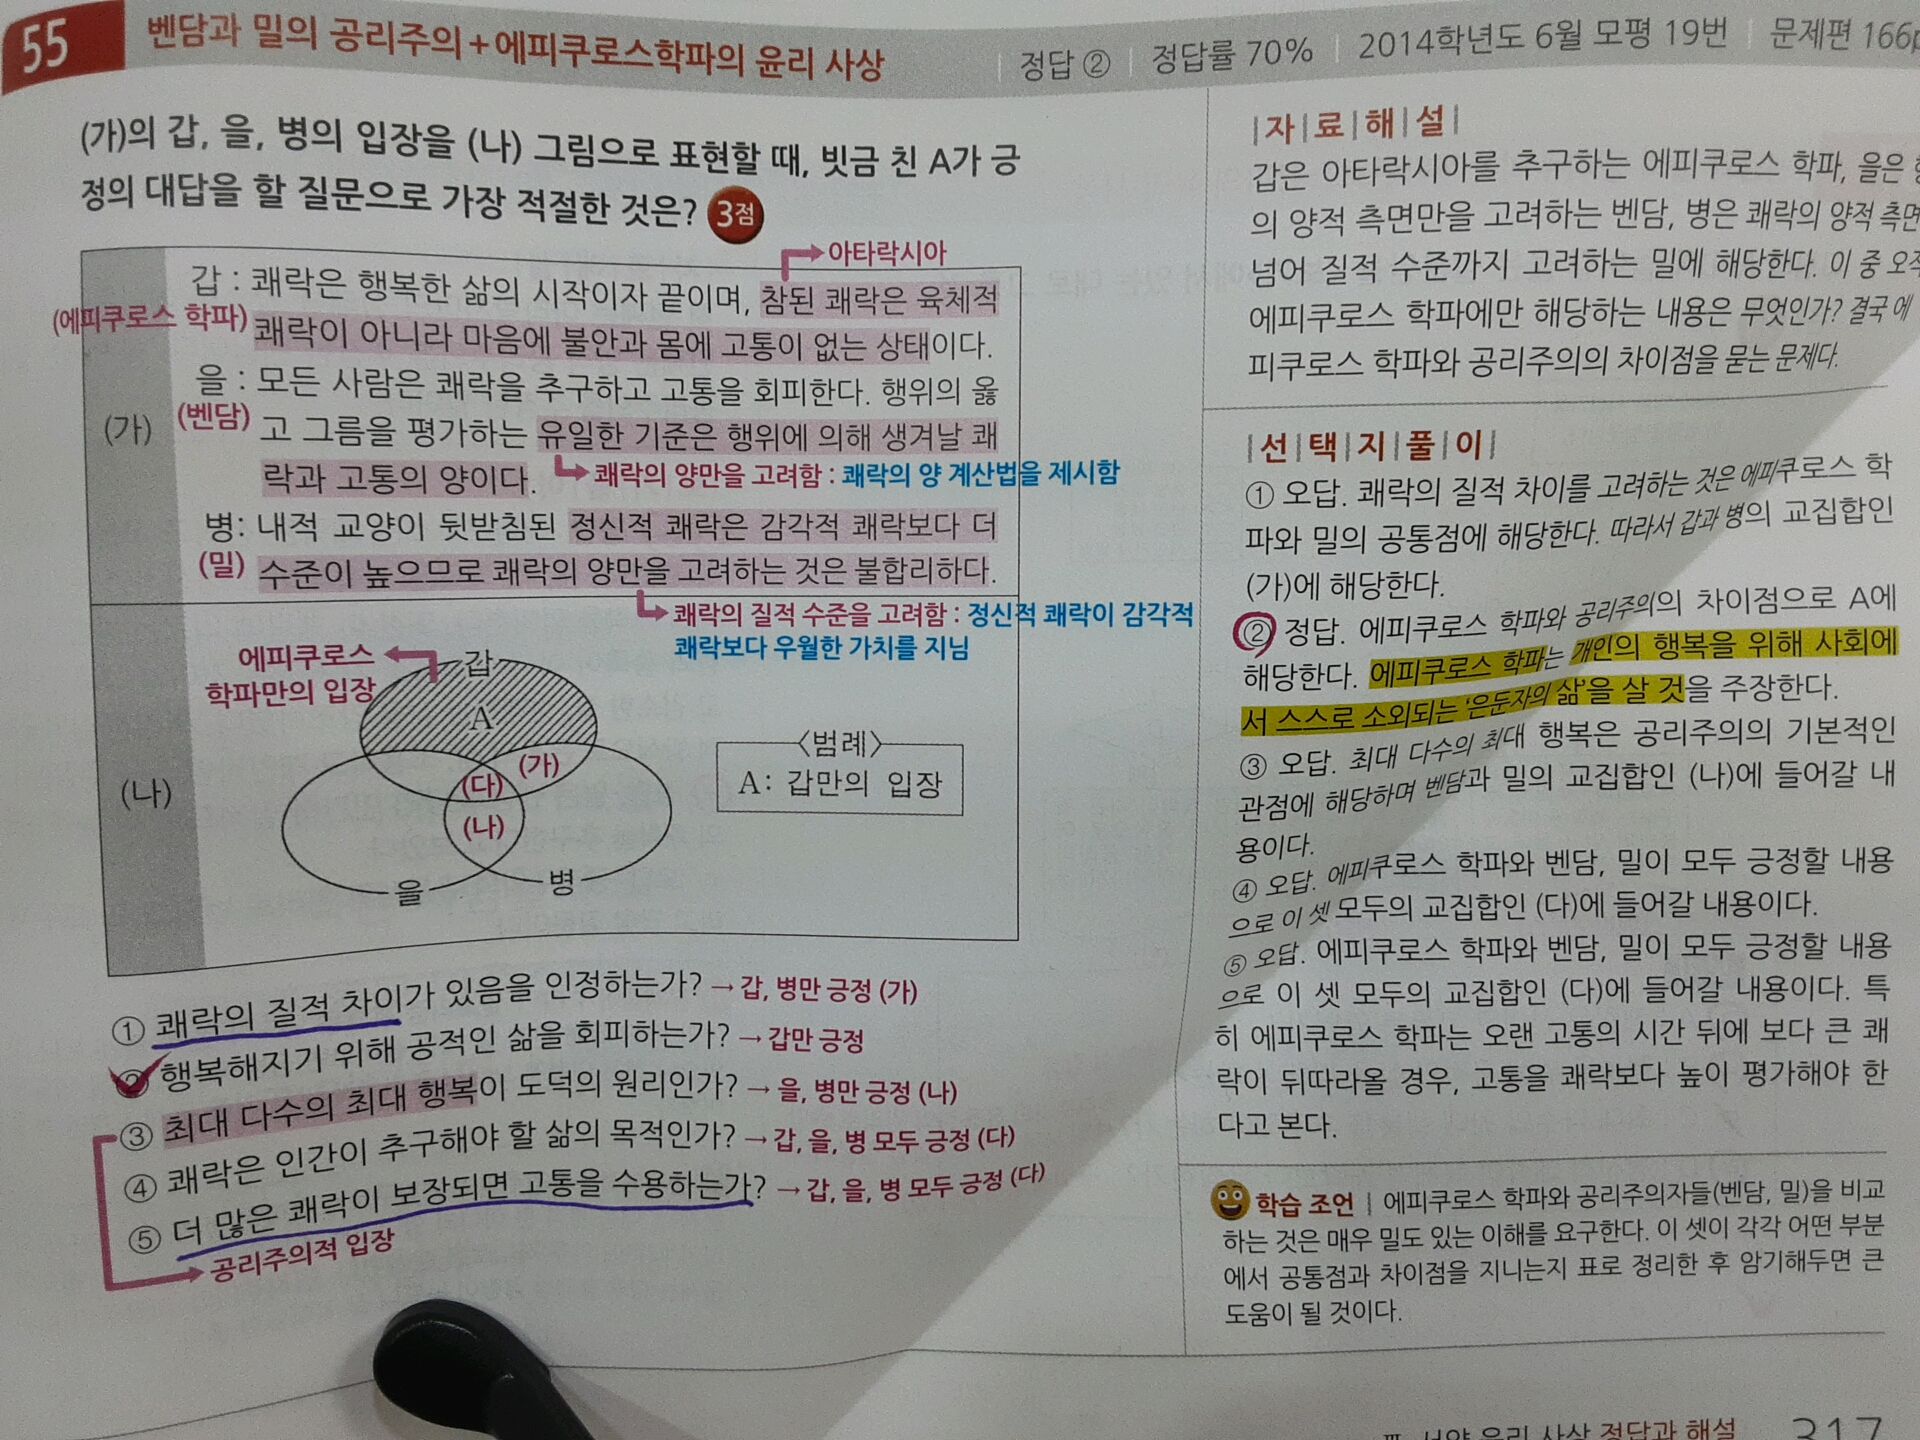 55 벤담과 밀의 공리주의+에피쿠로스학파의 윤리 사상 정답 ② 정답률 70% 2014학년도 6월 모평 19번 문제편 166p
(가)의 갑, 을, 병의 입장을 (나) 그림으로 표현할 때, 빗금 친 A가 긍
정의 대답을 할 질문으로 가장 적절한 것은? 3점
아타락시아
갑 : 쾌락은 행복한 삶의 시작이자 끝이며, 참된 쾌락은 육체적
(에피쿠로스 학파) 쾌락이 아니라 마음에 불안과 몸에 고통이 없는 상태이다.
을 : 모든 사람은 쾌락을 추구하고 고통을 회피한다. 행위의 옳
(가) (벤담) 고 그름을 평가하는 유일한 기준은 행위에 의해 생겨날 쾌
락과 고통의 양이다. 쾌락의 양만을 고려함 : 쾌락의 양 계산법을 제시함
병: 내적 교양이 뒷받침된 정신적 쾌락은 감각적 쾌락보다 더
(밀) 수준이 높으므로 쾌락의 양만을 고려하는 것은 불합리하다.
쾌락의 질적 수준을 고려함 : 정신적 쾌락이 감각적
쾌락보다 우월한 가치를 지님
에피쿠로스
학파만의 입장
갑
A
(나)
(가)
(다)
(나)
을
병
<범례>
A: 갑만의 입장
① 쾌락의 질적 차이가 있음을 인정하는가? → 갑, 병만 긍정 (가)
② 행복해지기 위해 공적인 삶을 회피하는가? → 갑만 긍정
③ 최대 다수의 최대 행복이 도덕의 원리인가? → 을, 병만 긍정 (나)
④ 쾌락은 인간이 추구해야 할 삶의 목적인가? → 갑, 을, 병 모두 긍정 (다)
⑤ 더 많은 쾌락이 보장되면 고통을 수용하는가? → 갑, 을, 병 모두 긍정 (다)
공리주의적 입장
|자|료|해|설|
갑은 아타락시아를 추구하는 에피쿠로스 학파, 을은
의 양적 측면만을 고려하는 벤담, 병은 쾌락의 양적 측면
넘어 질적 수준까지 고려하는 밀에 해당한다. 이 중 오직
에피쿠로스 학파에만 해당하는 내용은 무엇인가? 결국 에
피쿠로스 학파와 공리주의의 차이점을 묻는 문제다.
|선|택|지|풀|이|
① 오답. 쾌락의 질적 차이를 고려하는 것은 에피쿠로스 학
파와 밀의 공통점에 해당한다. 따라서 갑과 병의 교집합인
(가)에 해당한다.
② 정답. 에피쿠로스 학파와 공리주의의 차이점으로 A에
해당한다. 에피쿠로스 학파는 개인의 행복을 위해 사회에
서 스스로 소외되는 '은둔자의 삶'을 살 것을 주장한다.
③ 오답. 최대 다수의 최대 행복은 공리주의의 기본적인
관점에 해당하며 벤담과 밀의 교집합인 (나)에 들어갈 내
용이다.
④ 오답. 에피쿠로스 학파와 벤담, 밀이 모두 긍정할 내용
으로 이 셋 모두의 교집합인 (다)에 들어갈 내용이다.
⑤ 오답. 에피쿠로스 학파와 벤담, 밀이 모두 긍정할 내용
으로 이 셋 모두의 교집합인 (다)에 들어갈 내용이다. 특
히 에피쿠로스 학파는 오랜 고통의 시간 뒤에 보다 큰 쾌
락이 뒤따라올 경우, 고통을 쾌락보다 높이 평가해야 한
다고 본다.
학습 조언 | 에피쿠로스 학파와 공리주의자들(벤담, 밀)을 비교
하는 것은 매우 밀도 있는 이해를 요구한다. 이 셋이 각각 어떤 부분
에서 공통점과 차이점을 지니는지 표로 정리한 후 암기해두면 큰
도움이 될 것이다.
서양 윤리 사상 정답과 해설 317